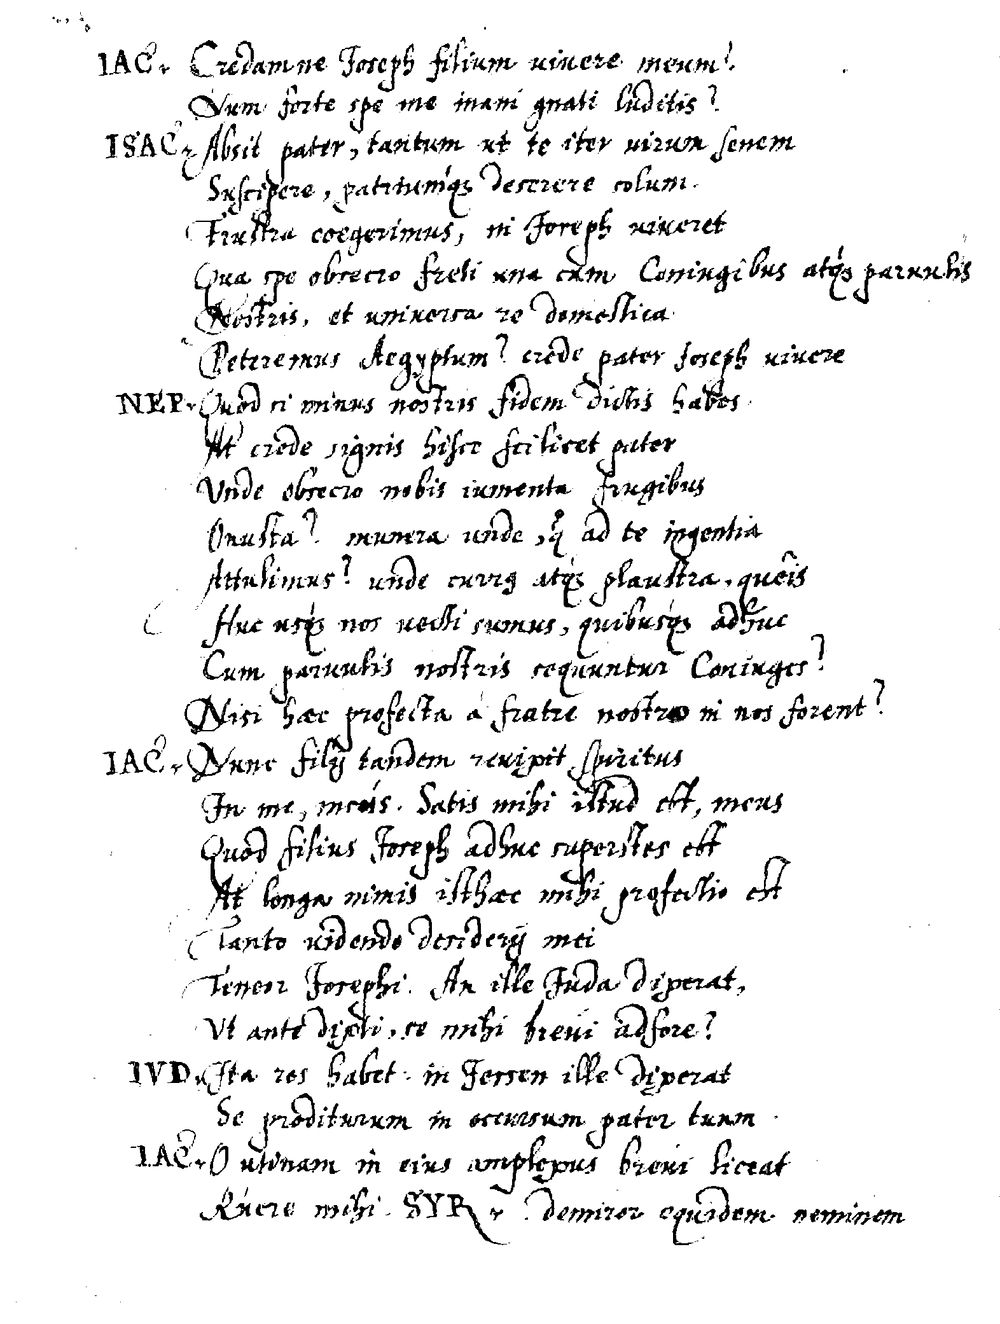 IAC. Credamne Joseph filium viuere meum?
Num forte spe me inani gnati luditis?
ISAC. Absit pater, tantum ut te iter virum senem
Suscipere, patriumq́ꝫ deserere solum.
Frustra coegerimus, ni Joseph viueret
Qua spe obsecro freti una cum Coniugibus atq́ꝫ paruulis
Nostris, et uniuersa re domestica
Peteremus Aegyptum? crede pater Joseph viuere
NEP. Quod si minus nostris fidem dictis habes.
At crede signis hisce scilicet pater
Vnde obsecro nobis iumenta frugibus
Onusta? munera unde, q̃ ad te ingentia
Attulimus? unde currꝫ atq́ꝫ plaustra, queîs
Huc usq́ꝫ nos uecti sumus, quibusq́ꝫ adhuc
Cum paruulis nostris sequuntur Coniuges?
Nisi hæc profecta á fratre nostro ni nos forent?
IAC. Nunc filij tandem reuixit spiritus
In me, meús. Satis mihi istud est, meus
Quod filius Joseph adhuc superstes est
At longa nimis isthæc mihi profectio est
Tanto videndo desiderij mei
Teneor Josephi. An ille Juda dixerat,
Vt ante dixti, se mihi breui adfore?
IVD. Ita res habet. in Jessen ille dixerat
Se proditurum in occursum pater tuum.
IAC. O utinam in eius amplexus breui liceat
Ruere mihi. SYR. demiror equidem neminem